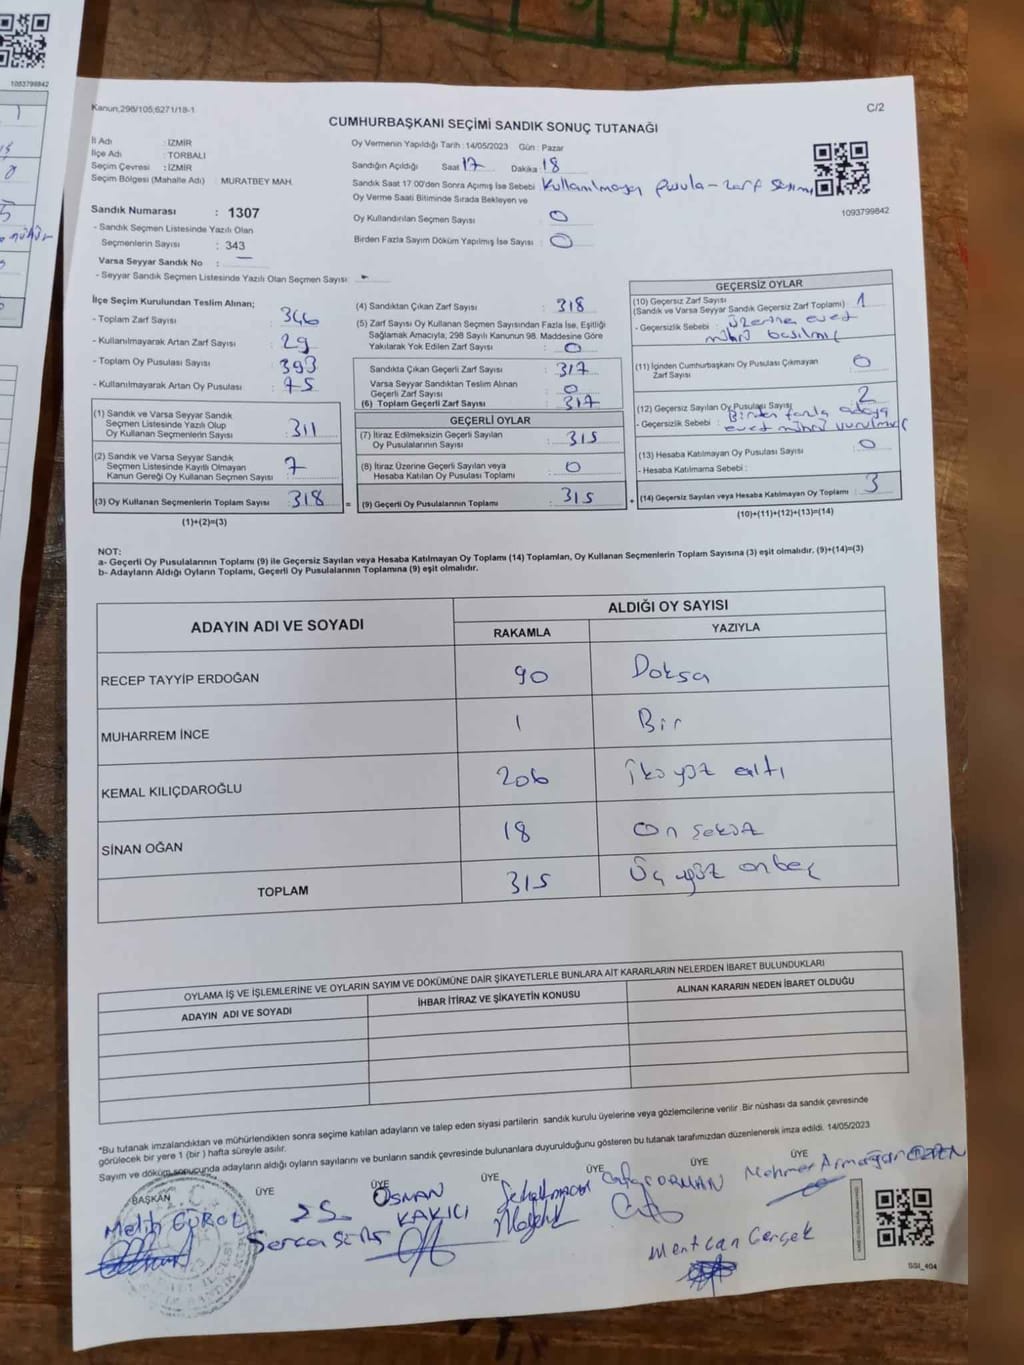 1093799842
Kanun,298/105;6271/18-1
C/2
CUMHURBAŞKANI SEÇİMİ SANDIK SONUÇ TUTANAĞI
İl Adı : İZMİR
İlçe Adı : TORBALI
Seçim Çevresi : İZMİR
Seçim Bölgesi (Mahalle Adı) : MURATBEY MAH.
Oy Vermenin Yapıldığı Tarih : 14/05/2023 Gün : Pazar
Sandığın Açıldığı Saat 17 Dakika 18
Sandık Saat 17:00'den Sonra Açımış İse Sebebi Kullanılmayan pusula - zarf sayımı
Oy Verme Saati Bitiminde Sırada Bekleyen ve
Oy Kullandırılan Seçmen Sayısı 0
Birden Fazla Sayım Döküm Yapılmış İse Sayısı : 0
1093799842
Sandık Numarası : 1307
- Sandık Seçmen Listesinde Yazılı Olan
Seçmenlerin Sayısı : 343
Varsa Seyyar Sandık No : —
- Seyyar Sandık Seçmen Listesinde Yazılı Olan Seçmen Sayısı : -
İlçe Seçim Kurulundan Teslim Alınan;
- Toplam Zarf Sayısı : 346
- Kullanılmayarak Artan Zarf Sayısı : 29
- Toplam Oy Pusulası Sayısı : 393
- Kullanılmayarak Artan Oy Pusulası : 75
(1) Sandık ve Varsa Seyyar Sandık
Seçmen Listesinde Yazılı Olup
Oy Kullanan Seçmenlerin Sayısı : 311
(2) Sandık ve Varsa Seyyar Sandık
Seçmen Listesinde Kayıtlı Olmayan
Kanun Gereği Oy Kullanan Seçmen Sayısı : 7
(3) Oy Kullanan Seçmenlerin Toplam Sayısı : 318
(1)+(2)=(3)
(4) Sandıktan Çıkan Zarf Sayısı : 318
(5) Zarf Sayısı Oy Kullanan Seçmen Sayısından Fazla İse, Eşitliği
Sağlamak Amacıyla; 298 Sayılı Kanunun 98. Maddesine Göre
Yakılarak Yok Edilen Zarf Sayısı : 0
Sandıkta Çıkan Geçerli Zarf Sayısı : 317
Varsa Seyyar Sandıktan Teslim Alınan
Geçerli Zarf Sayısı : 0
(6) Toplam Geçerli Zarf Sayısı : 317
GEÇERLİ OYLAR
(7) İtiraz Edilmeksizin Geçerli Sayılan
Oy Pusulalarının Sayısı : 315
(8) İtiraz Üzerine Geçerli Sayılan veya
Hesaba Katılan Oy Pusulası Toplamı : 0
= (9) Geçerli Oy Pusulalarının Toplamı : 315
GEÇERSİZ OYLAR
(10) Geçersiz Zarf Sayısı : 1
(Sandık ve Varsa Seyyar Sandık Geçersiz Zarf Toplamı)
- Geçersizlik Sebebi : üzerine evet
mührü basılmış
(11) İçinden Cumhurbaşkanı Oy Pusulası Çıkmayan
Zarf Sayısı : 0
(12) Geçersiz Sayılan Oy Pusulası Sayısı : 2
- Geçersizlik Sebebi : Birden fazla adaya
evet mührü vurulmuş
(13) Hesaba Katılmayan Oy Pusulası Sayısı : 0
- Hesaba Katılmama Sebebi :
+ (14) Geçersiz Sayılan veya Hesaba Katılmayan Oy Toplamı : 3
(10)+(11)+(12)+(13)=(14)
NOT:
a- Geçerli Oy Pusulalarının Toplamı (9) ile Geçersiz Sayılan veya Hesaba Katılmayan Oy Toplamı (14) Toplamları, Oy Kullanan Seçmenlerin Toplam Sayısına (3) eşit olmalıdır. (9)+(14)=(3)
b- Adayların Aldığı Oyların Toplamı, Geçerli Oy Pusulalarının Toplamına (9) eşit olmalıdır.
ADAYIN ADI VE SOYADI
ALDIĞI OY SAYISI
RAKAMLA YAZIYLA
RECEP TAYYİP ERDOĞAN 90 Doksa
MUHARREM İNCE 1 Bir
KEMAL KILIÇDAROĞLU 206 iki yüz altı
SİNAN OĞAN 18 On sekiz
TOPLAM 315 Üç yüz onbeş
OYLAMA İŞ VE İŞLEMLERİNE VE OYLARIN SAYIM VE DÖKÜMÜNE DAİR ŞİKAYETLERLE BUNLARA AİT KARARLARIN NELERDEN İBARET BULUNDUKLARI
ADAYIN ADI VE SOYADI İHBAR İTİRAZ VE ŞİKAYETİN KONUSU ALINAN KARARIN NEDEN İBARET OLDUĞU
*Bu tutanak imzalandıktan ve mühürlendikten sonra seçime katılan adayların ve talep eden siyasi partilerin sandık kurulu üyelerine veya gözlemcilerine verilir. Bir nüshası da sandık çevresinde
görülecek bir yere 1 (bir ) hafta süreyle asılır.
Sayım ve döküm sonucunda adayların aldığı oyların sayılarını ve bunların sandık çevresinde bulunanlara duyurulduğunu gösteren bu tutanak tarafımızdan düzenlenerek imza edildi. 14/05/2023
BAŞKAN ÜYE ÜYE ÜYE ÜYE ÜYE ÜYE
Melih GÜROL
OSMAN
KAKICI
ORMAN
Mehmet Armağan
Mertcan Gerçek
SSI_404